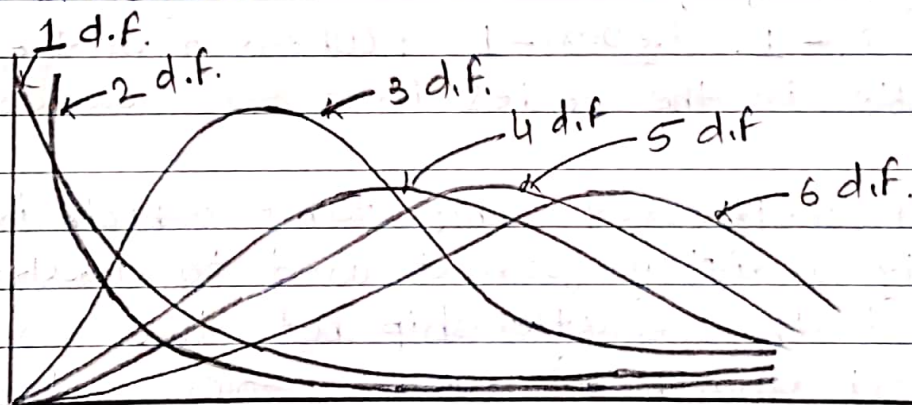 1 d.f.
2 d.f.
3 d.f.
4 d.f
5 d.f
6 d.f.